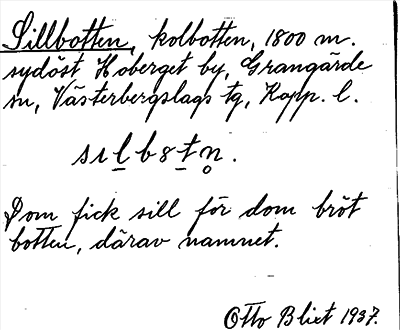 Sillbotten, kolbotten, 1800 m.
sydöst Hoberget by, Grangärde
sn, Västerbergslags tg, Kopp. l.
sılbɞtn̥.
Dom fick sill för dom bröt
botten, därav namnet.
Otto Blixt 1937.